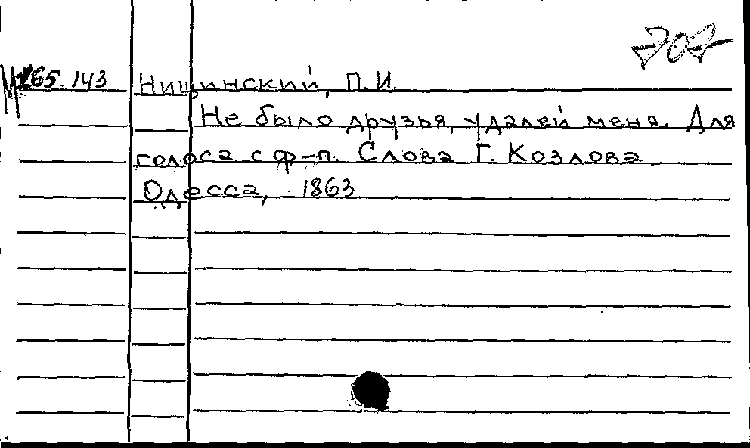 707
М 165.143 Нищинский, П.И.
Не было друзья, удалей меня. Для
голоса с ф-п. Слова Г. Козлова
Одесса, 1863